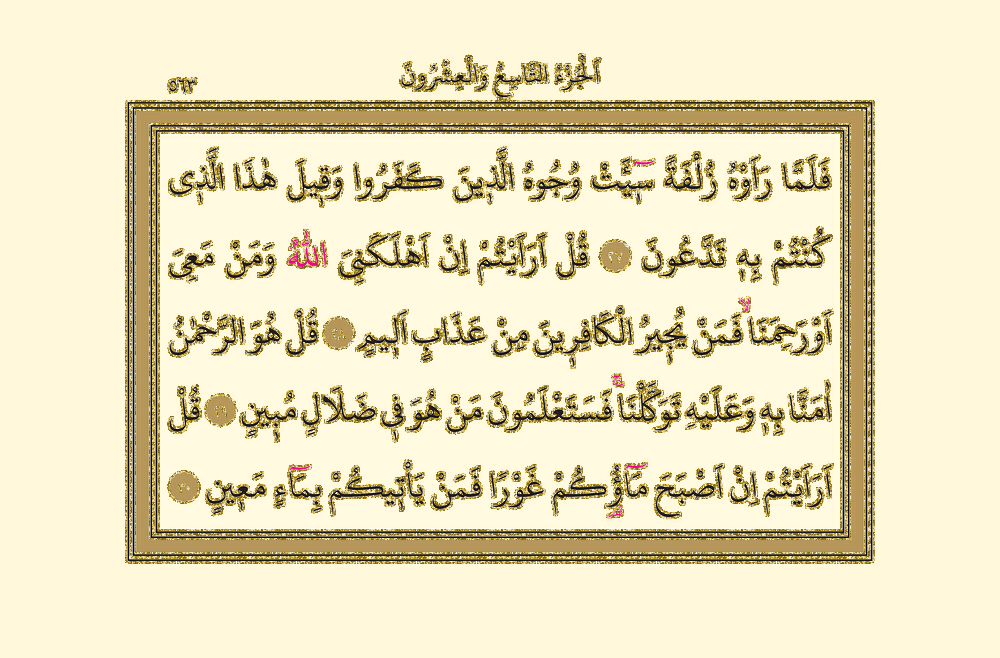 اَلْجُزْءُ التَّاسِعُ وَالْعِشْرُونَ
٥٦٣
فَلَمَّا رَاَوْهُ زُلْفَةً سٓيـَٔتْ وُجُوهُ الَّذ۪ينَ كَفَرُوا وَق۪يلَ هٰذَا الَّذ۪ى
كُنْتُمْ بِه۪ تَدَّعُونَ ﴿٢٧﴾ قُلْ اَرَاَيْتُمْ اِنْ اَهْلَكَنِىَ اللّٰهُ وَمَنْ مَعِىَ
اَوْ رَحِمَنَاۙ فَمَنْ يُج۪يرُ الْكَافِر۪ينَ مِنْ عَذَابٍ اَل۪يمٍ ﴿٢٨﴾ قُلْ هُوَ الرَّحْمٰنُ
اٰمَنَّا بِه۪ وَعَلَيْهِ تَوَكَّلْنَاۚ فَسَتَعْلَمُونَ مَنْ هُوَ ف۪ى ضَلَالٍ مُب۪ينٍ ﴿٢٩﴾ قُلْ
اَرَاَيْتُمْ اِنْ اَصْبَحَ مَٓاؤُ۬كُمْ غَوْرًا فَمَنْ يَاْت۪يكُمْ بِمَٓاءٍ مَع۪ينٍ ﴿٣٠﴾